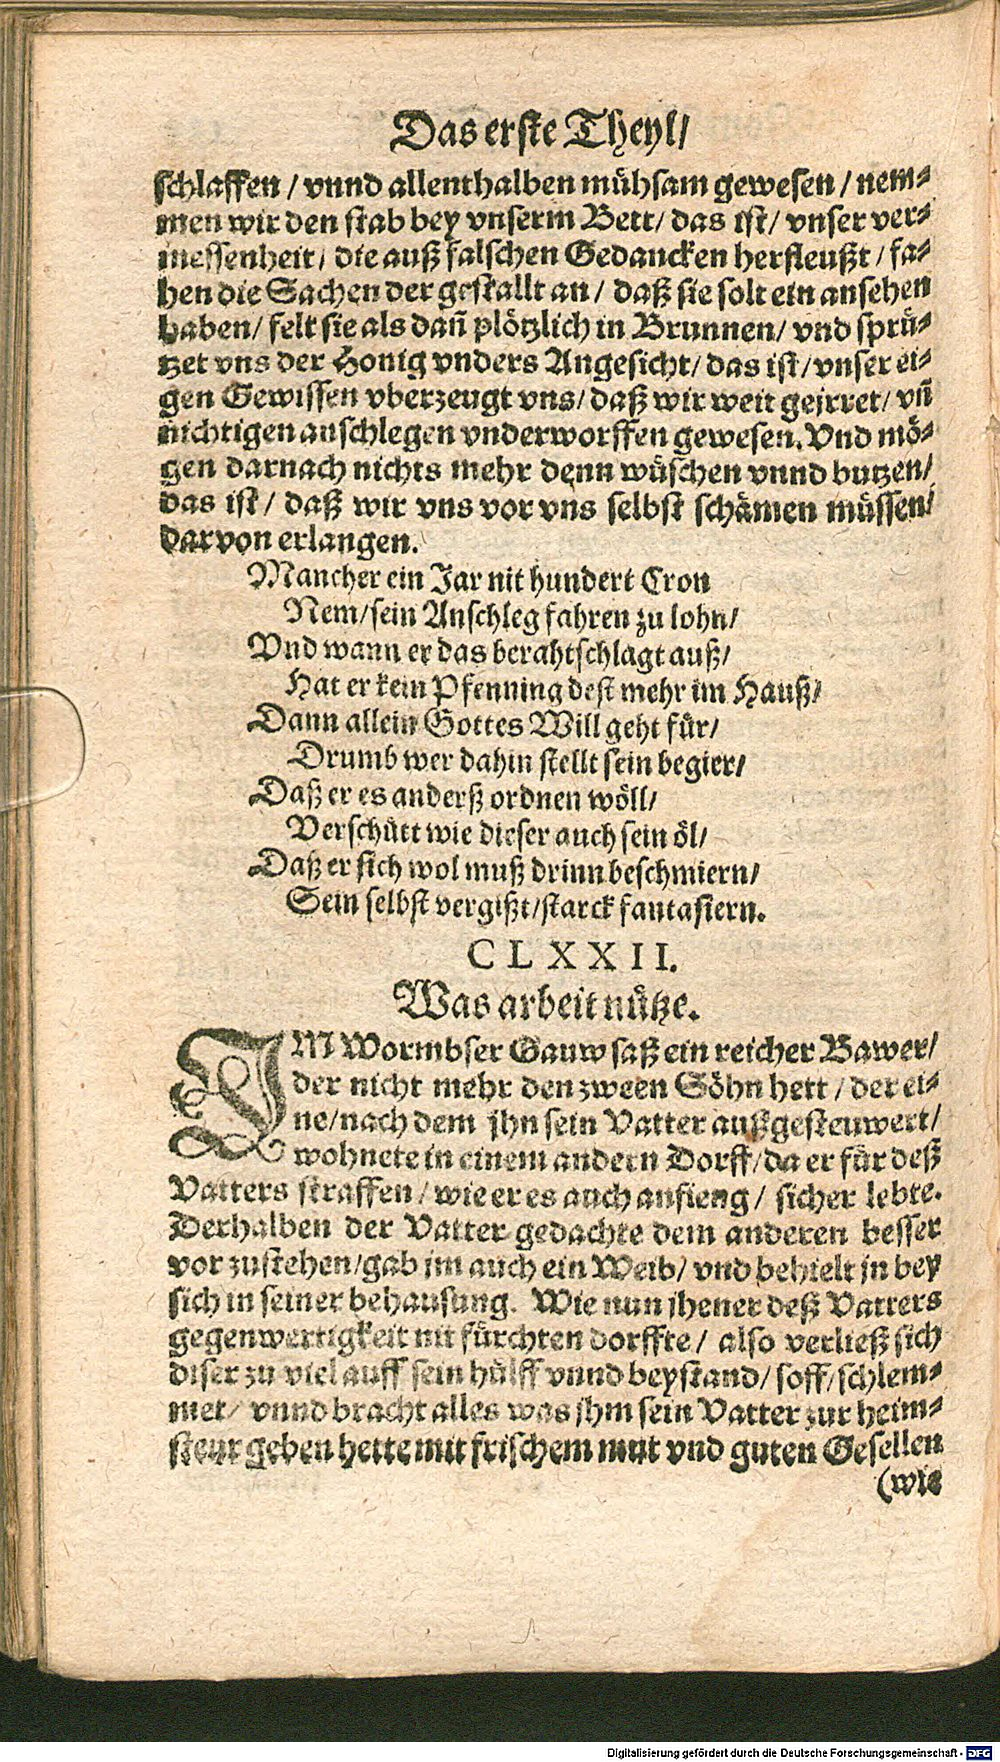 Das erste Theyl/
schlaffen / vnnd allenthalben mühsam gewesen / nem-
men wir den stab bey vnserm Bett/ das ist/ vnser ver-
messenheit/ die auß falschen Gedancken herfleußt / fa-
hen die Sachen der gestallt an / daß sie solt ein ansehen
haben/ felt sie als dañ plötzlich in Brunnen/ vnd sprü-
tzet vns der Honig vnders Angesicht/ das ist/ vnser ei-
gen Gewissen vberzeugt vns/ daß wir weit geirret/ vñ
nichtigen anschlegen vnderworffen gewesen. Vnd mö-
gen darnach nichts mehr denn wüschen vnnd butzen/
das ist/ daß wir vns vor vns selbst schämen müssen/
darvon erlangen.
Mancher ein Jar nit hundert Cron
Nem/ sein Anschleg fahren zu lohn/
Vnd wann er das berahtschlagt auß/
Hat er kein Pfenning dest mehr im Hauß/
Dann allein Gottes Will geht für/
Drumb wer dahin stellt sein begier/
Daß er es anderß ordnen wöll/
Verschütt wie dieser auch sein öl/
Daß er sich wol muß drinn beschmiern/
Sein selbst vergißt/ starck fantasiern.
CLXXII.
Was arbeit nütze.
IM Wormbser Gauw saß ein reicher Bawer/
der nicht mehr den zween Söhn hett / der ei-
ne/ nach dem jhn sein Vatter außgesteuwert/
wohnete in einem andern Dorff/ da er für deß
Vatters straffen / wie er es auch anfieng / sicher lebte.
Derhalben der Vatter gedachte dem anderen besser
vor zustehen/ gab im auch ein Weib/ vnd behielt jn bey
sich in seiner behausung. Wie nun jhener deß Vatters
gegenwertigkeit nit fürchten dorffte / also verließ sich
diser zu viel auff sein hülff vnnd beystand/ soff/ schlem-
met/ vnnd bracht alles was jhm sein Vatter zur heim-
steur geben hette mit frischem mut vnd guten Gesellen
(wie
Digitalisierung gefördert durch die Deutsche Forschungsgemeinschaft - DFG